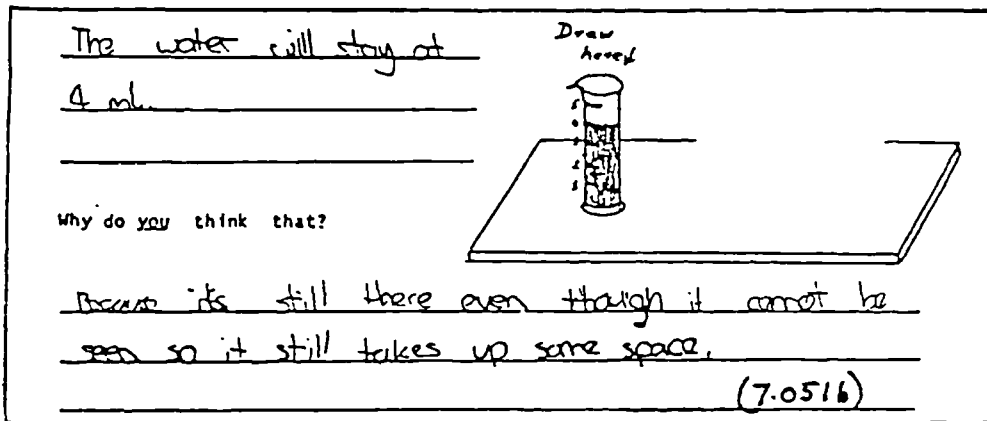 The water will stay at
4 ml.
Draw
here
Why do you think that?
Because its still there even though it cannot be
seen so it still takes up some space.
(7.051b)